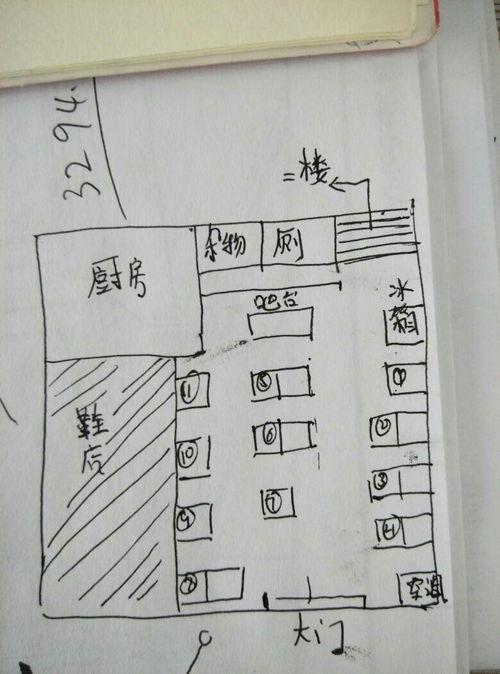 3294.
二楼
厨房
杂物
厕
吧台
冰箱
⑪
⑤
①
⑩
⑥
②
鞋店
③
⑨
⑦
④
⑧
空调
大门